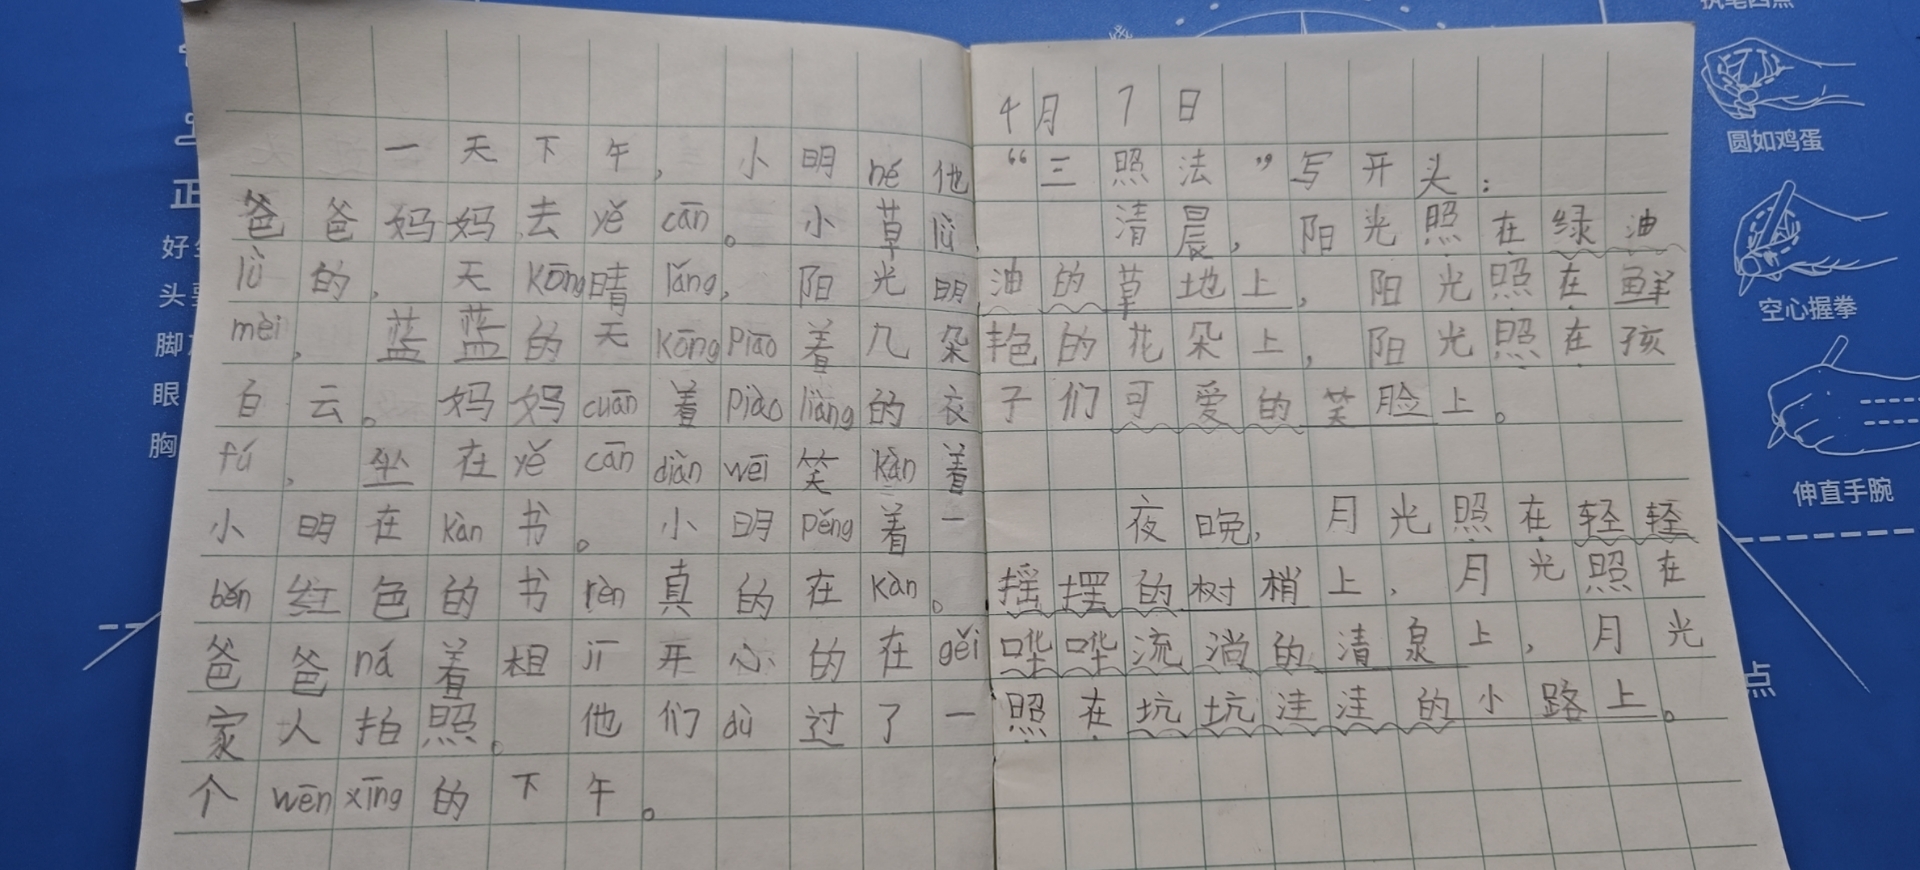 一天下午，小明 né 他
爸爸妈妈去 yě cān。小草 lǜ
lǜ 的，天 kōng 晴 lǎng，阳光明
mèi，蓝蓝的天 kōng piāo 着几朵
白云。妈妈 cuān 着 piào liàng 的衣
fú，坐在 yě cān diàn wēi 笑 kàn 着
小明在 kàn 书。小明 pěng 着一
běn 红色的书 rèn 真的在 kàn。
爸爸 ná 着相 jī 开心的在 gěi
家人拍照。他们 dù 过了一
个 wēn xīng 的下午。
4月7日
“三照法”写开头：
清晨，阳光照在绿油
油的草地上，阳光照在鲜
艳的花朵上，阳光照在孩
子们可爱的笑脸上。
夜晚，月光照在轻轻
摇摆的树梢上，月光照在
哗哗流淌的清泉上，月光
照在坑坑洼洼的小路上。
正
好
头
脚
眼
胸
执笔四点
圆如鸡蛋
空心握拳
伸直手腕
点